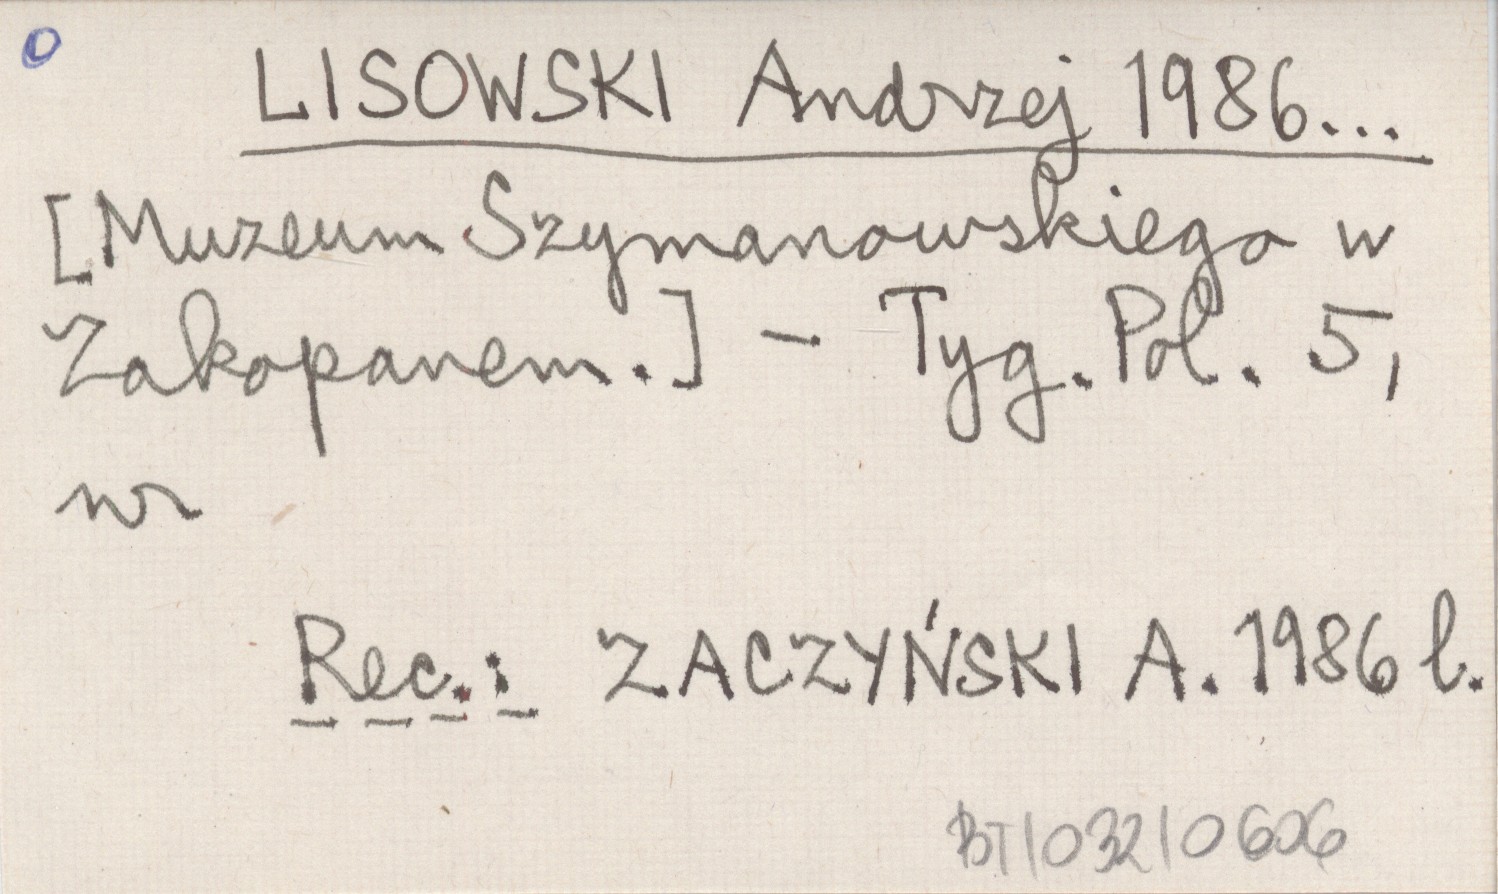 O
LISOWSKI Andrzej 1986...
[Muzeum Szymanowskiego w
Zakopanem.] – Tyg. Pol. 5,
nr
Rec.: ZACZYŃSKI A. 1986 l.
BT/032/0606